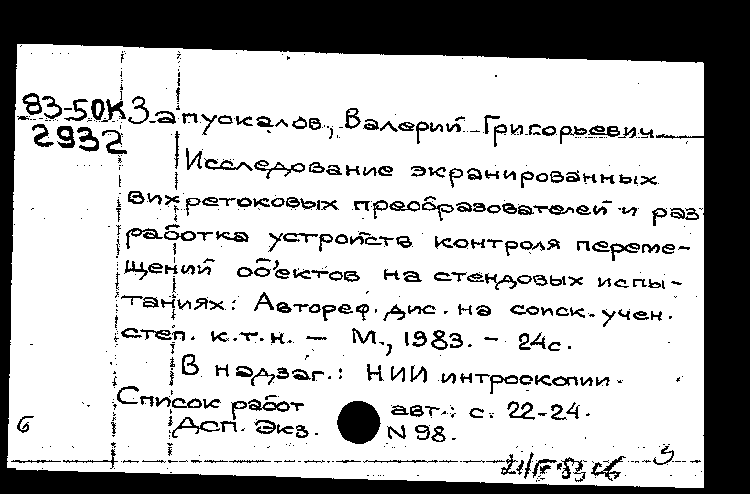 83-50К Запускалов, Валерий Григорьевич
2932
Исследование экранированных
вихретоковых преобразователей и раз
работка устройств контроля переме-
щений об'ектов на стендовых испы-
таниях: Автореф. дис. на соиск. учен.
степ. к.т.н. - М., 1983. - 24с.
В надзаг.: НИИ интроскопии.
Список работ авт.: с. 22-24.
6 ДСП. Экз. N 98.
21/IV-83 3